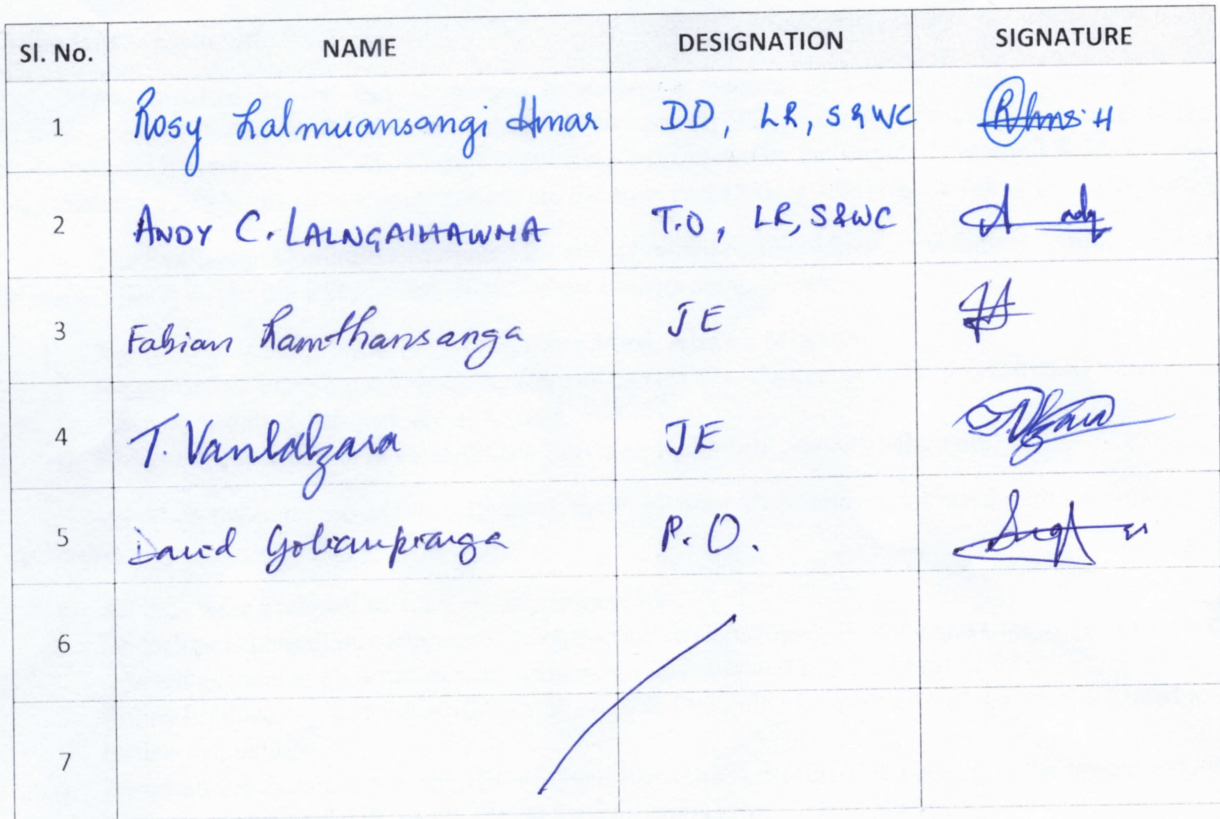 Sl. No. NAME DESIGNATION SIGNATURE
1 Rosy Lalmuansangi Hmar DD, LR, S&WC
2 ANDY C. LALNGAIHAWMA T.O, LR, S&WC
3 Fabian Ramthansanga JE
4 T. Vanlalzara JE
5 David P.O.
6
7